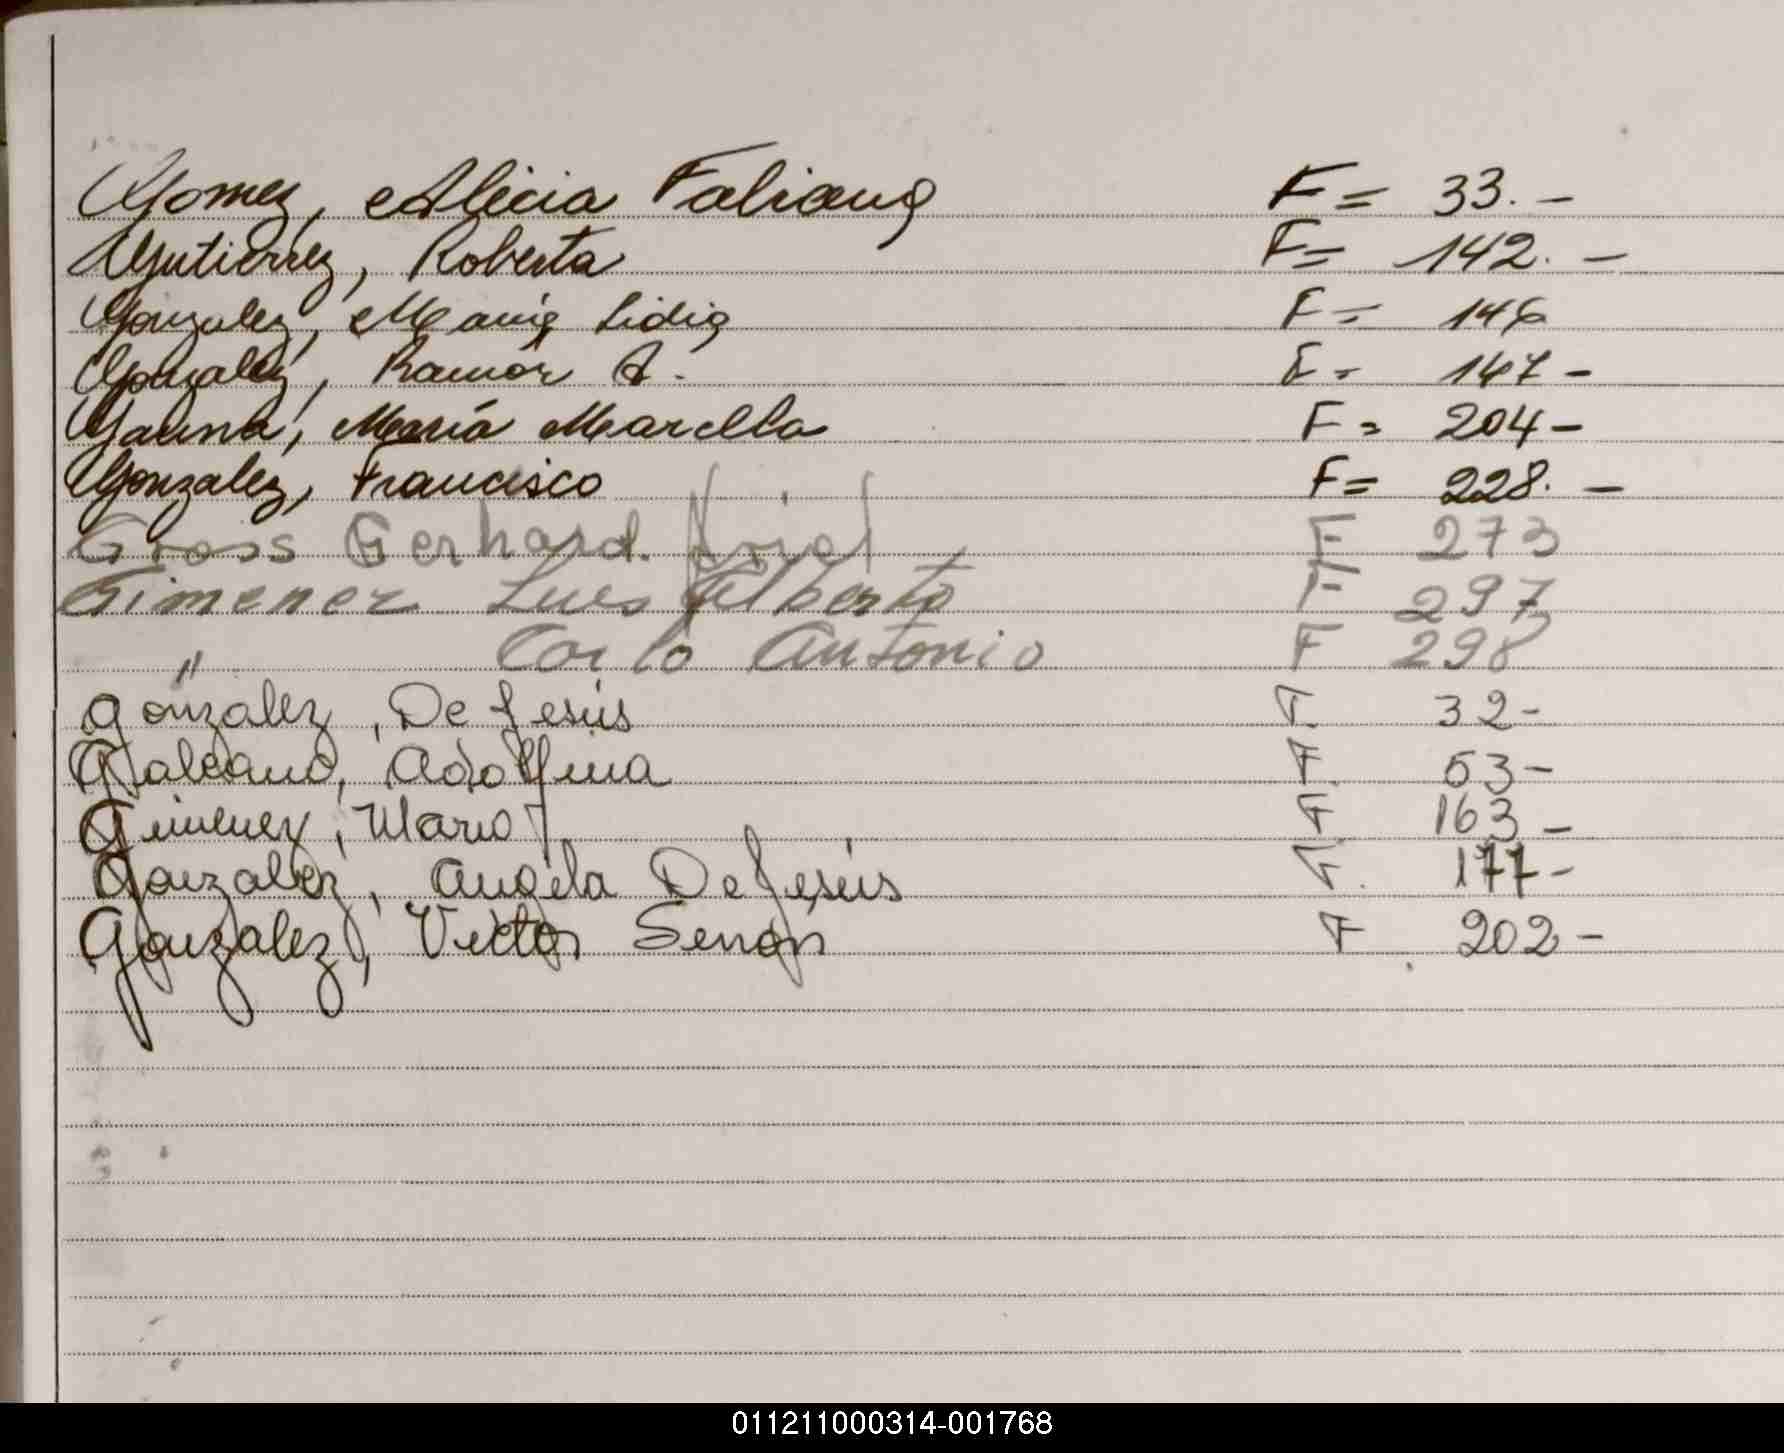 Gomez, Alicia Fabiana F= 33.-
Gutierrez, Roberta F= 142.-
Gonzalez, Maria Lidia F= 146
Gonzalez, Ramón A. F= 147-
Gauna, María Marcella F= 204-
Gonzalez, Francisco F= 228.-
Gross Gerhard. F 273
Gimenez Luis Alberto F 297
" Carlo Antonio F 298
Gonzalez, De Jesús F. 32-
Galeano, Adolfina F. 53-
Gimenez, Mario F. 163-
Gonzalez, Angela De Jesús F. 177-
Gonzalez, Victor F 202-
011211000314-001768